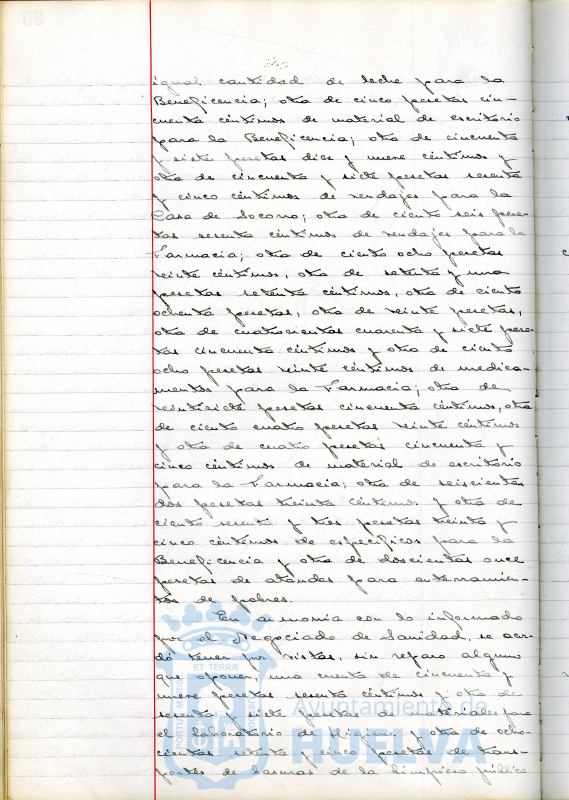 igual cantidad de leche para la
Beneficencia; otra de cinco pesetas cin-
cuenta céntimos de material de escritorio
para la Beneficencia; otra de cincuenta
y siete pesetas diez y nueve céntimos y
otra de cincuenta y siete pesetas sesenta
y cinco céntimos de vendajes para la
Casa de Socorro; otra de ciento seis pese-
tas sesenta céntimos de vendajes para la
Farmacia; otra de ciento ocho pesetas
veinte céntimos, otra de setenta y una
pesetas setenta céntimos, otra de ciento
ochenta pesetas, otra de veinte pesetas,
otra de cuatrocientas cuarenta y siete pese-
tas cincuenta céntimos y otra de ciento
ocho pesetas veinte céntimos de medica-
mentos para la Farmacia; otra de
veintisiete pesetas cincuenta céntimos, otra
de ciento cuatro pesetas veinte céntimos
y otra de cuatro pesetas cincuenta y
cinco céntimos de material de escritorio
para la Farmacia; otra de seiscientas
dos pesetas treinta céntimos y otra de
ciento sesenta y tres pesetas treinta y
cinco céntimos de específicos para la
Beneficencia y otra de doscientas once
pesetas de ataudes para enterramien-
tos de pobres.
En armonia con lo informado
por el Negociado de Sanidad, se acor-
dó tener por vistas, sin reparo alguno
que oponer, una cuenta de cincuenta y
nueve pesetas sesenta céntimos y otra de
sesenta y siete pesetas de materiales para
el laboratorio de Higiene y otra de ocho-
cientas y cinco pesetas de trans-
portes de basuras de la limpieza pública
Ayuntamiento de
HUELVA